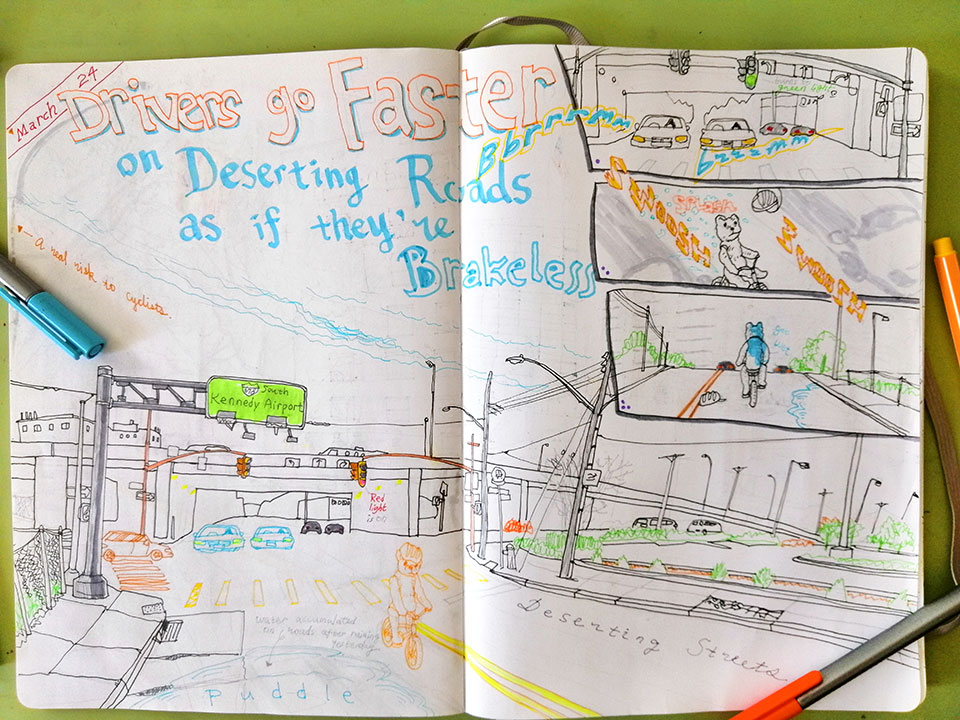 March 24
Drivers go Faster
on Deserting Roads
as if they're
Brakeless
— A real risk to cyclists.
Bbrrrrmm
brrrmm
green light
SWOOSH
Splash
SWOOSH
South
Kennedy Airport
Red
light
is on
water accumulated
on roads after raining
yesterday
puddle
Deserting Streets